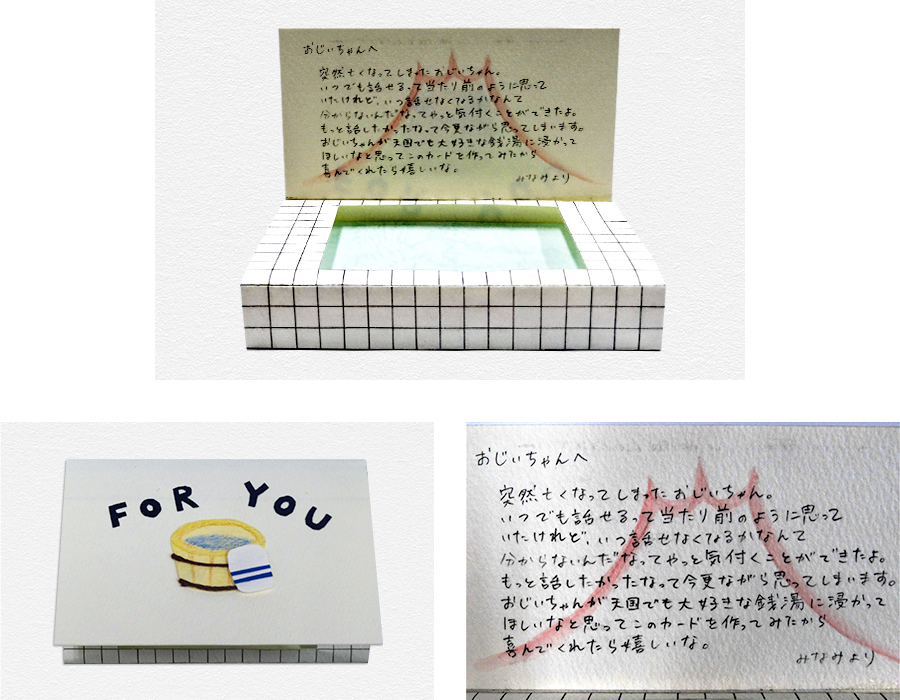 おじいちゃんへ
突然亡くなってしまったおじいちゃん。
いつでも話せるって当たり前のように思って
いたけれど、いつ話せなくなるかなんて
分からないんだなってやっと気付くことができたよ。
もっと話したかったなって今更ながら思ってしまいます。
おじいちゃんが天国でも大好きな銭湯に浸かって
ほしいなと思ってこのカードを作ってみたから
喜んでくれたら嬉しいな。
みなみより
FOR YOU
おじいちゃんへ
突然亡くなってしまったおじいちゃん。
いつでも話せるって当たり前のように思って
いたけれど、いつ話せなくなるかなんて
分からないんだなってやっと気付くことができたよ。
もっと話したかったなって今更ながら思ってしまいます。
おじいちゃんが天国でも大好きな銭湯に浸かって
ほしいなと思ってこのカードを作ってみたから
喜んでくれたら嬉しいな。
みなみより